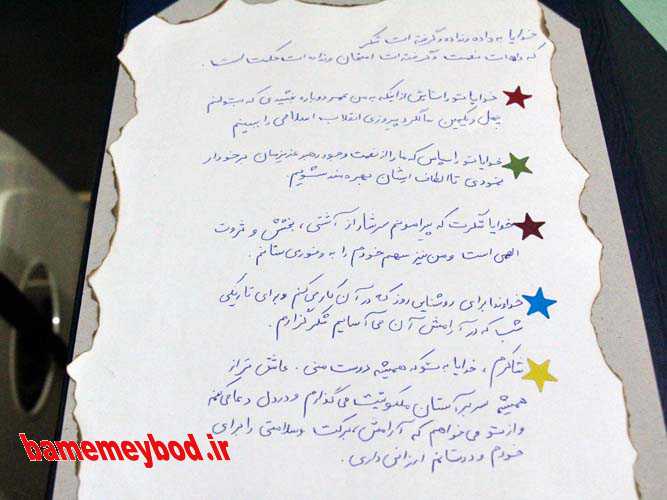 خدایا به داده و نداده و گرفته ات شکر
که داده ات نعمت و گرفته ات امتحان و نداده ات حکمت است.
خدایا تو را ستایش از اینکه به من عمر دوباره بخشیدی که بتوانم
چهل و یکمین سالگرد پیروزی انقلاب اسلامی را ببینم
خدایا تو را سپاس که ما را از نعمت وجود رهبر عزیزمان برخوردار
نمودی تا از الطاف ایشان بهره مند شویم.
خدایا شکرت که پیرامونم سرشار از آشتی، بخشش و ثروت
الهی است و من نیز سهم خودم را به وفوری ستانم.
خداوندا برای روشنایی روز که در آن کار می کنم و برای تاریکی
شب که در آرامش آن می آسایم شکرگزارم.
شاکرم، خدایا به تو که همیشه دوست منی. عاشق تر از
همیشه سر بر آستان ملکوتیت می گذارم و درد دل و دعا می کنم
و از تو می خواهم که آرامش، برکت و سلامتی را برای
خودم و دوستانم ارزانی داری.
bamemeybod.ir